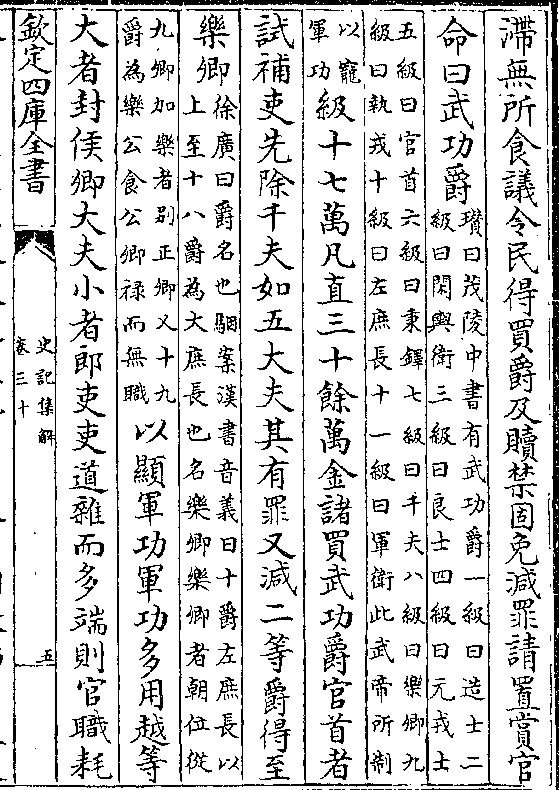 滯無所食議令民得買爵及贖禁固免減罪請置賞官
命曰武功爵
瓉曰茂陵中書有武功爵一級曰造士二
級曰閑輿衛三級曰良士四級曰元戎士
五級曰官首六級曰秉鐸七級曰千夫八級曰樂卿九
級曰執戎十級曰左庶長十一級曰軍衛此武帝所制
以寵
軍功
級十七萬凡直三十餘萬金諸買武功爵官首者
試補吏先除千夫如五大夫其有罪又減二等爵得至
樂卿
徐廣曰爵名也駰案漢書音義曰十爵左庶長以
上至十八爵為大庶長也名樂卿樂卿者朝位從
九卿加樂者别正卿又十九
爵為樂公食公卿祿而無職
以顯軍功軍功多用越等
大者封侯卿大夫小者郎吏吏道雜而多端則官職耗
欽定四庫全書
史記集解
卷三十
五